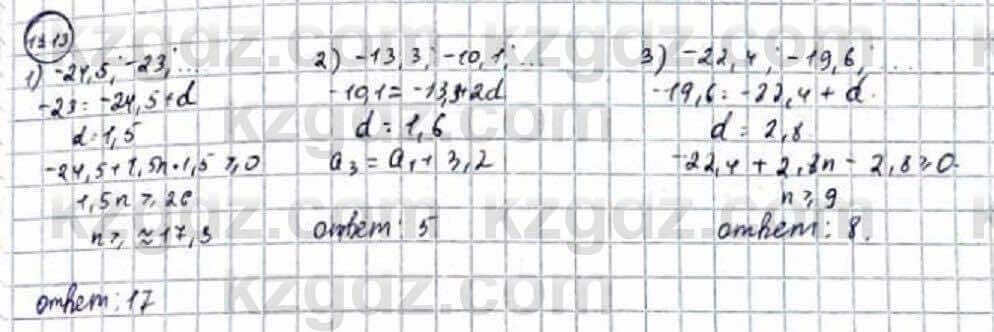 13.13
1) -24,5; -23; ...
-23 = -24,5 + d
d = 1,5
-24,5 + 1,5n - 1,5 ⩾ 0
1,5n ⩾ 26
n ⩾ ≈ 17,3
ответ: 17
2) -13,3; -10,1; ...
-10,1 = -13,3 + 2d
d = 1,6
a₃ = a₁ + 3,2
ответ: 5
3) -22,4; -19,6; ...
-19,6 = -22,4 + d.
d = 2,8
-22,4 + 2,8n - 2,8 ⩾ 0.
n ⩾ 9
ответ: 8.
kzgdz.com